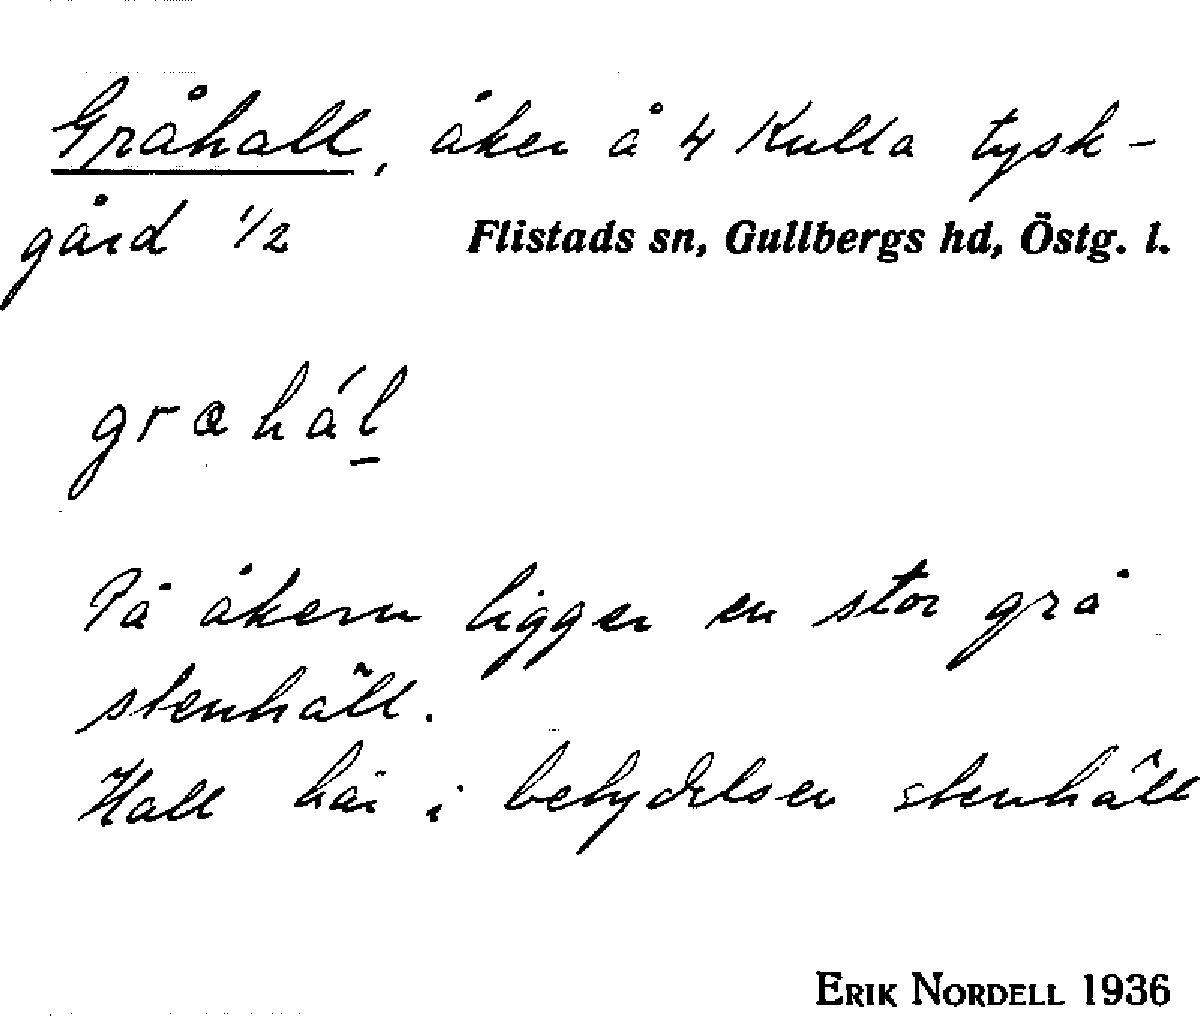 Gråhall, åker å 4 Kulla tysk-
gård 1/2 Flistads sn, Gullbergs hd, Östg. l.
grahál
På åkern ligger en stor grå
stenhäll.
Hall här i betydelsen stenhäll
ERIK NORDELL 1936